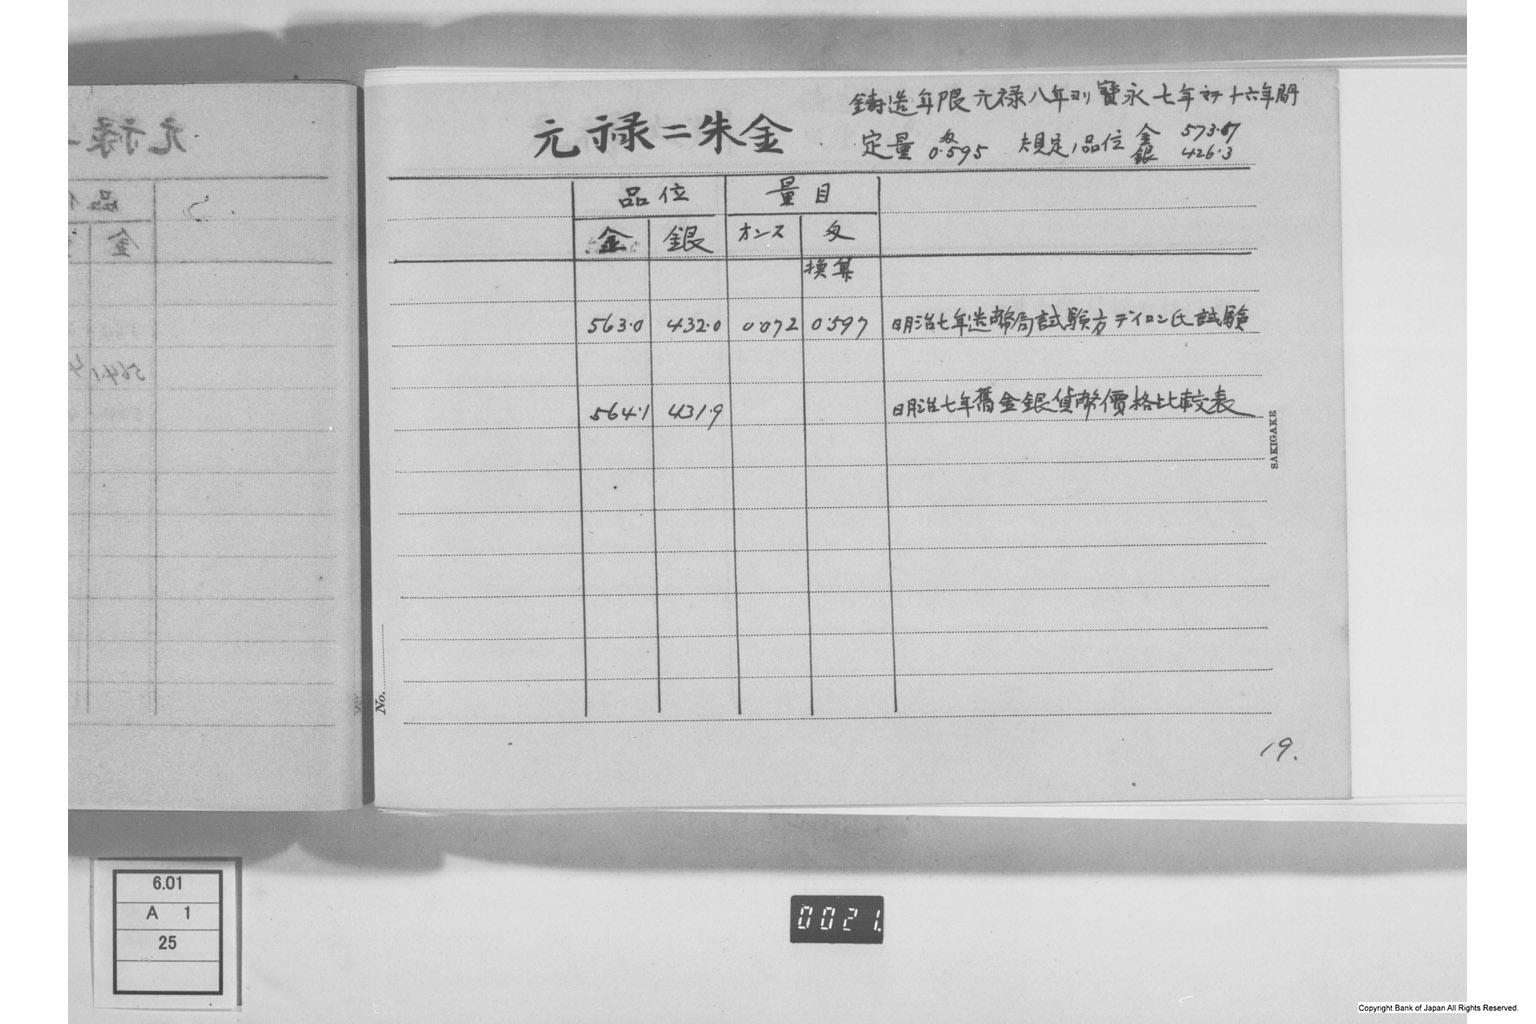 元禄二朱金
鋳造年限元禄八年ヨリ寳永七年マデ十六年間
定量 匁 0.595 規定ノ品位 金 573.67 銀 426.3
品位 量目
金 銀 オンス 匁
換算
563.0 432.0 0.072 0.597 明治七年造幣局試験方ディロン氏試験
564.1 431.9 明治七年舊金銀貨幣價格比較表
SAKIGAKE
No.
19.
6.01
A 1
25
0021.
Copyright Bank of Japan All Rights Reserved.